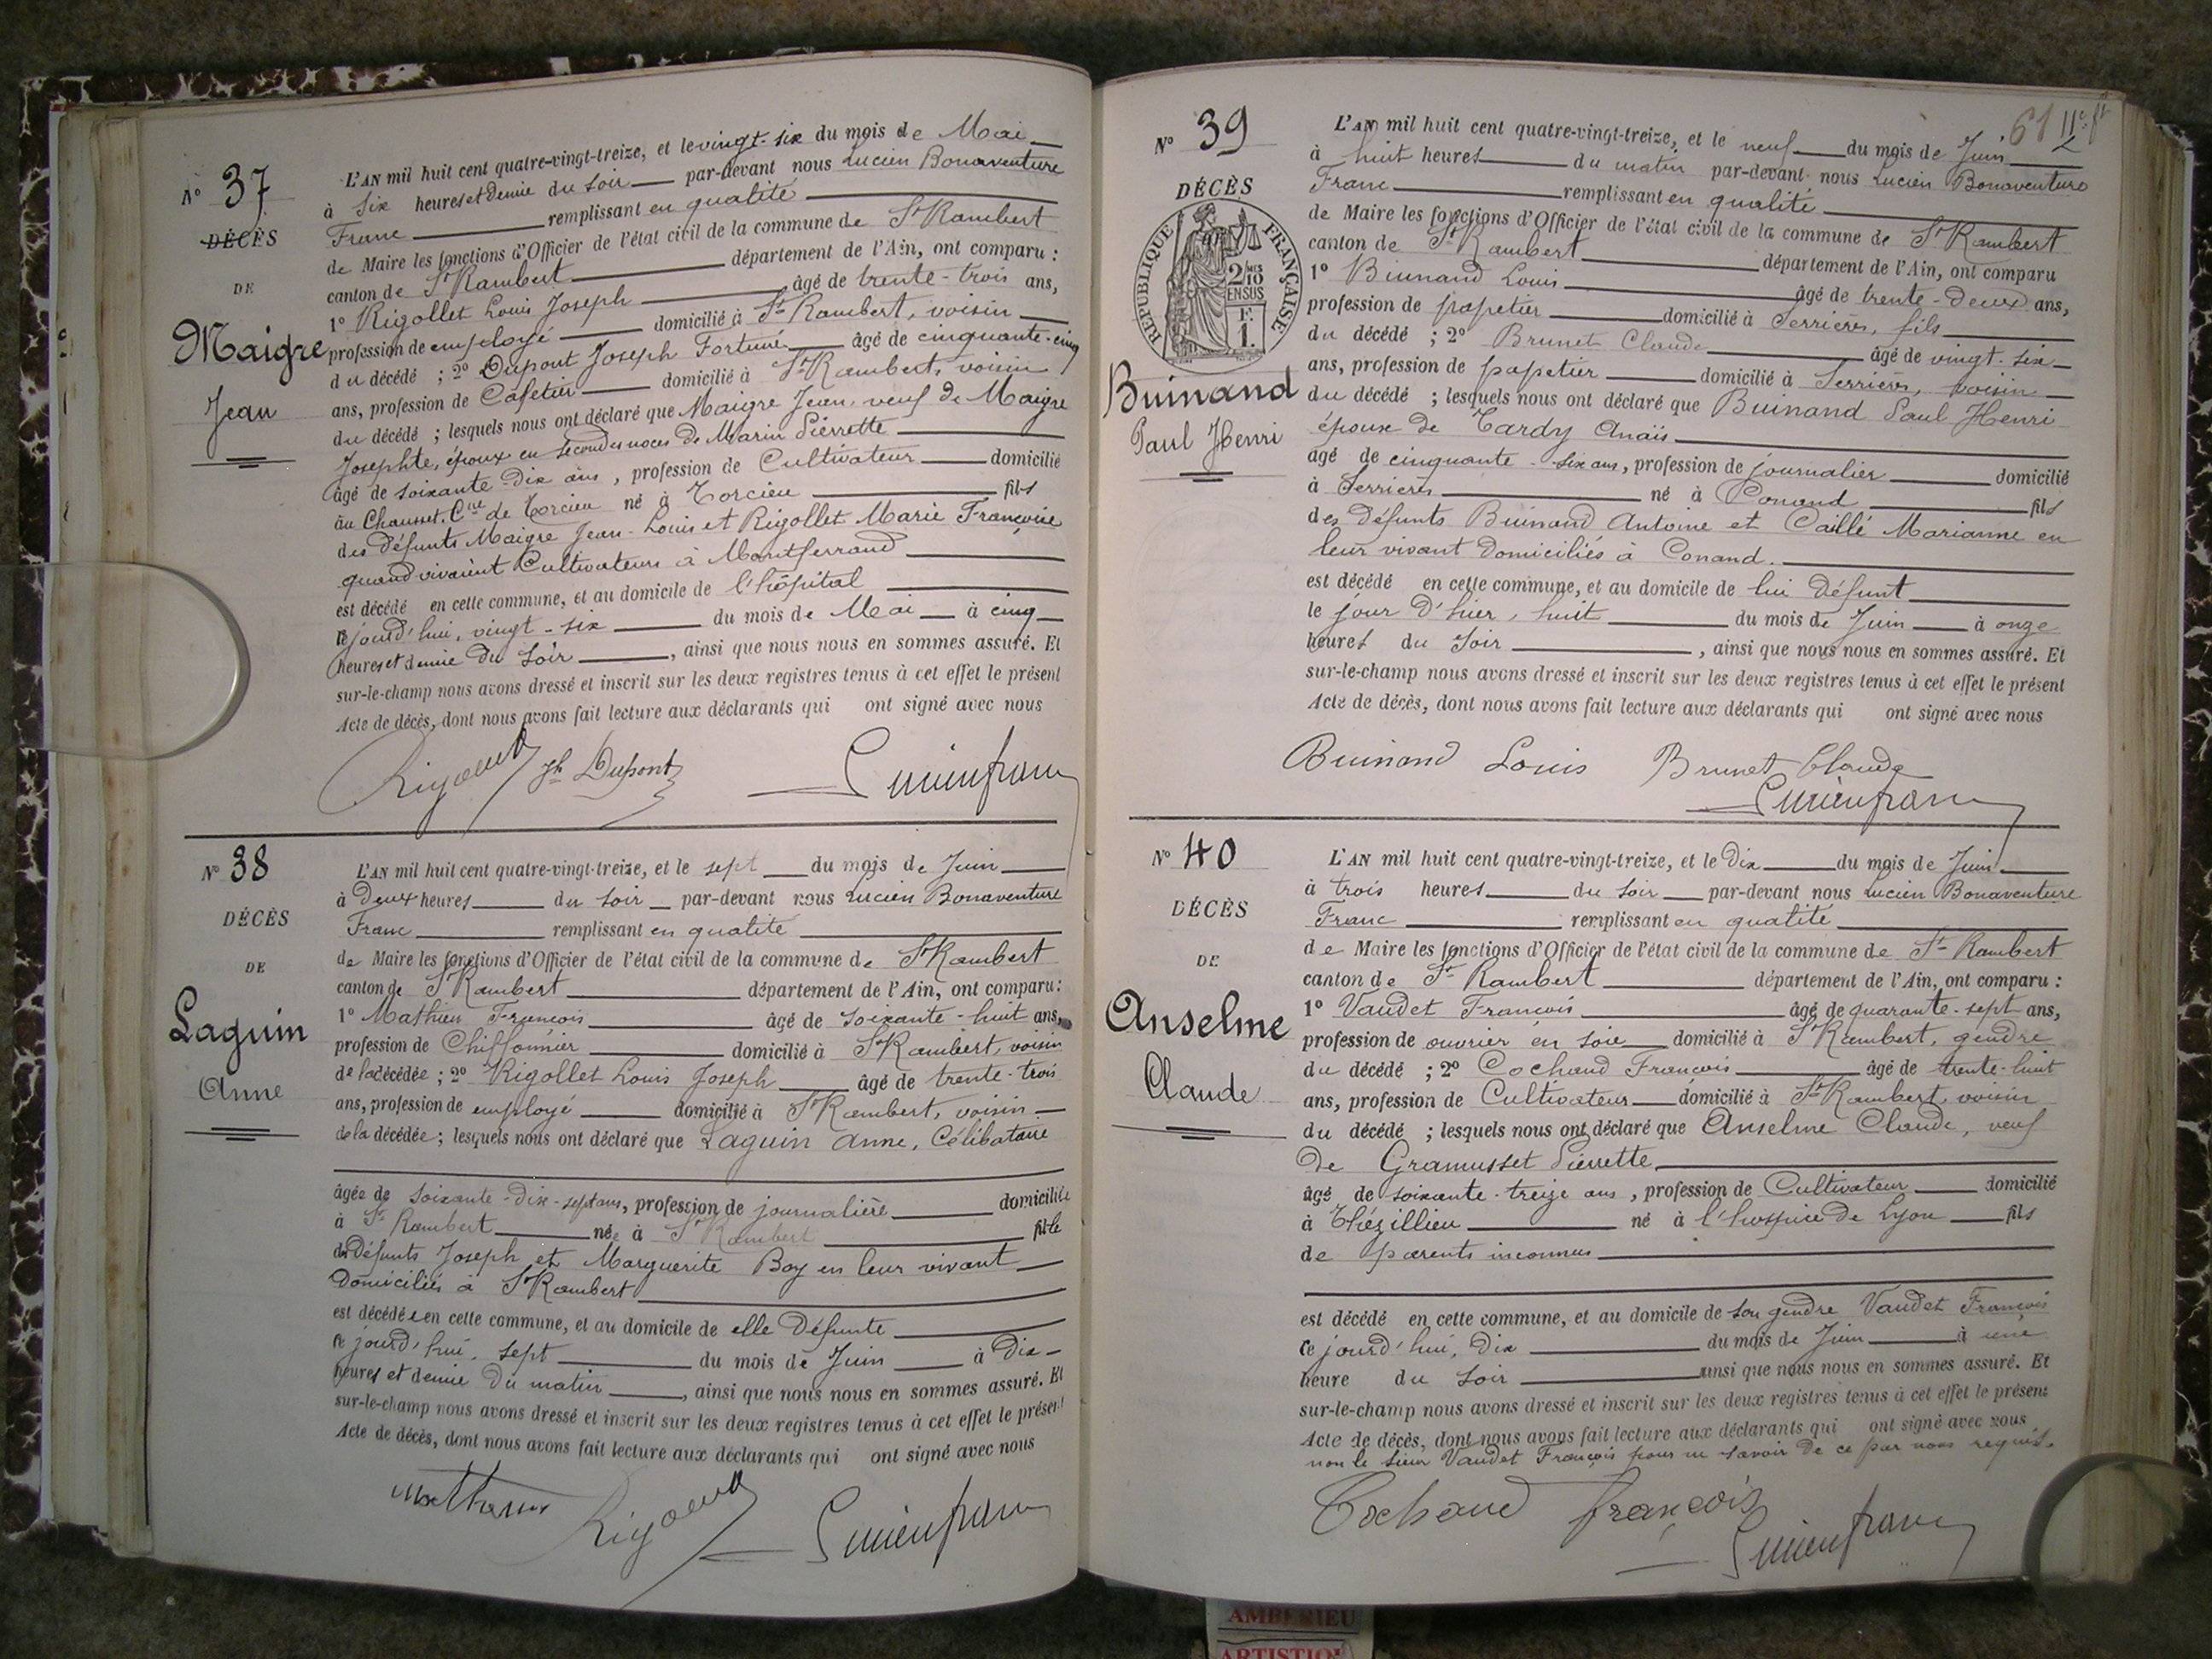 N° 37
DÉCÈS
DE
Maigre
Jean
L'AN mil huit cent quatre-vingt-treize, et le vingt-six du mois de Mai
à six heures et demie du soir par-devant nous Lucien Bonaventure
Franc remplissant en qualité
de Maire les fonctions d'Officier de l'état civil de la commune de St Rambert
canton de St Rambert département de l'Ain, ont comparu :
1° Rigollet Louis Joseph âgé de trente-trois ans,
profession de employé domicilié à St Rambert, voisin
du décédé ; 2° Dupont Joseph Fortuné âgé de cinquante-cinq
ans, profession de Cafetier domicilié à St Rambert, voisin
du décédé ; lesquels nous ont déclaré que Maigre Jean, veuf de Maigre
Josephte, époux en secondes noces de Marin Pierrette
âgé de soixante-dix ans, profession de Cultivateur domicilié
au Chausset, Cne de Torcieu né à Torcieu fils
des défunts Maigre Jean-Louis et Rigollet Marie Françoise
quand vivaient Cultivateurs à Montferrand
est décédé en cette commune, et au domicile de l'hôpital
ce jourd'hui, vingt-six du mois de Mai à cinq
heures et demie du soir, ainsi que nous nous en sommes assuré. Et
sur-le-champ nous avons dressé et inscrit sur les deux registres tenus à cet effet le présent
Acte de décès, dont nous avons fait lecture aux déclarants qui ont signé avec nous
Rigollet Jh Dupont Lucien franc
N° 38
DÉCÈS
DE
Laguin
Anne
L'AN mil huit cent quatre-vingt-treize, et le sept du mois de Juin
à deux heures du soir par-devant nous Lucien Bonaventure
Franc remplissant en qualité
de Maire les fonctions d'Officier de l'état civil de la commune de St Rambert
canton de St Rambert département de l'Ain, ont comparu :
1° Mathieu François âgé de soixante-huit ans,
profession de Chiffonnier domicilié à St Rambert, voisin
de la décédée ; 2° Rigollet Louis Joseph âgé de trente-trois
ans, profession de employé domicilié à St Rambert, voisin
de la décédée ; lesquels nous ont déclaré que Laguin Anne, Célibataire
âgée de soixante-dix-sept ans, profession de journalière domiciliée
à St Rambert née à St Rambert fille
des défunts Joseph et Marguerite Boy en leur vivant
domiciliés à St Rambert
est décédée en cette commune, et au domicile de elle défunte
ce jourd'hui, sept du mois de Juin à dix
heures et demie du matin, ainsi que nous nous en sommes assuré. Et
sur-le-champ nous avons dressé et inscrit sur les deux registres tenus à cet effet le présent
Acte de décès, dont nous avons fait lecture aux déclarants qui ont signé avec nous
Rigollet Lucien franc
61 IIe ft
N° 39
DÉCÈS
RÉPUBLIQUE FRANÇAISE
2/10 MES
EN SUS
F.
1.
Buinand
Paul Henri
L'AN mil huit cent quatre-vingt-treize, et le neuf du mois de Juin
à huit heures du matin par-devant nous Lucien Bonaventure
Franc remplissant en qualité
de Maire les fonctions d'Officier de l'état civil de la commune de St Rambert
canton de St Rambert département de l'Ain, ont comparu
1° Buinand Louis âgé de trente-deux ans,
profession de papetier domicilié à Serrières, fils
du décédé ; 2° Brunet Claude âgé de vingt-six
ans, profession de papetier domicilié à Serrières, voisin
du décédé ; lesquels nous ont déclaré que Buinand Paul Henri
époux de Tardy Anaïs
âgé de cinquante-six ans, profession de journalier domicilié
à Serrières né à Conand fils
des défunts Buinand Antoine et Caillé Marianne en
leur vivant domiciliés à Conand.
est décédé en cette commune, et au domicile de lui défunt
le jour d'hier, huit du mois de Juin à onze
heures du soir, ainsi que nous nous en sommes assuré. Et
sur-le-champ nous avons dressé et inscrit sur les deux registres tenus à cet effet le présent
Acte de décès, dont nous avons fait lecture aux déclarants qui ont signé avec nous
Buinand Louis Brunet Claude
Lucien franc
N° 40
DÉCÈS
DE
Anselme
Claude
L'AN mil huit cent quatre-vingt-treize, et le dix du mois de Juin
à trois heures du soir par-devant nous Lucien Bonaventure
Franc remplissant en qualité
de Maire les fonctions d'Officier de l'état civil de la commune de St Rambert
canton de St Rambert département de l'Ain, ont comparu :
1° Vaudet François âgé de quarante-sept ans,
profession de ouvrier en soie domicilié à St Rambert, gendre
du décédé ; 2° Cochand François âgé de trente-huit
ans, profession de Cultivateur domicilié à St Rambert, voisin
du décédé ; lesquels nous ont déclaré que Anselme Claude, veuf
de Gramusset Pierrette
âgé de soixante-treize ans, profession de Cultivateur domicilié
à Thézillieu né à l'hospice de Lyon fils
de parents inconnus
est décédé en cette commune, et au domicile de son gendre Vaudet François
ce jourd'hui, dix du mois de Juin à une
heure du soir ainsi que nous nous en sommes assuré. Et
sur-le-champ nous avons dressé et inscrit sur les deux registres tenus à cet effet le présent
Acte de décès, dont nous avons fait lecture aux déclarants qui ont signé avec nous
non le sieur Vaudet François pour ne savoir de ce par nous requis.
Cochand françois
Lucien franc
AMBERIEU
ARTISTIQU